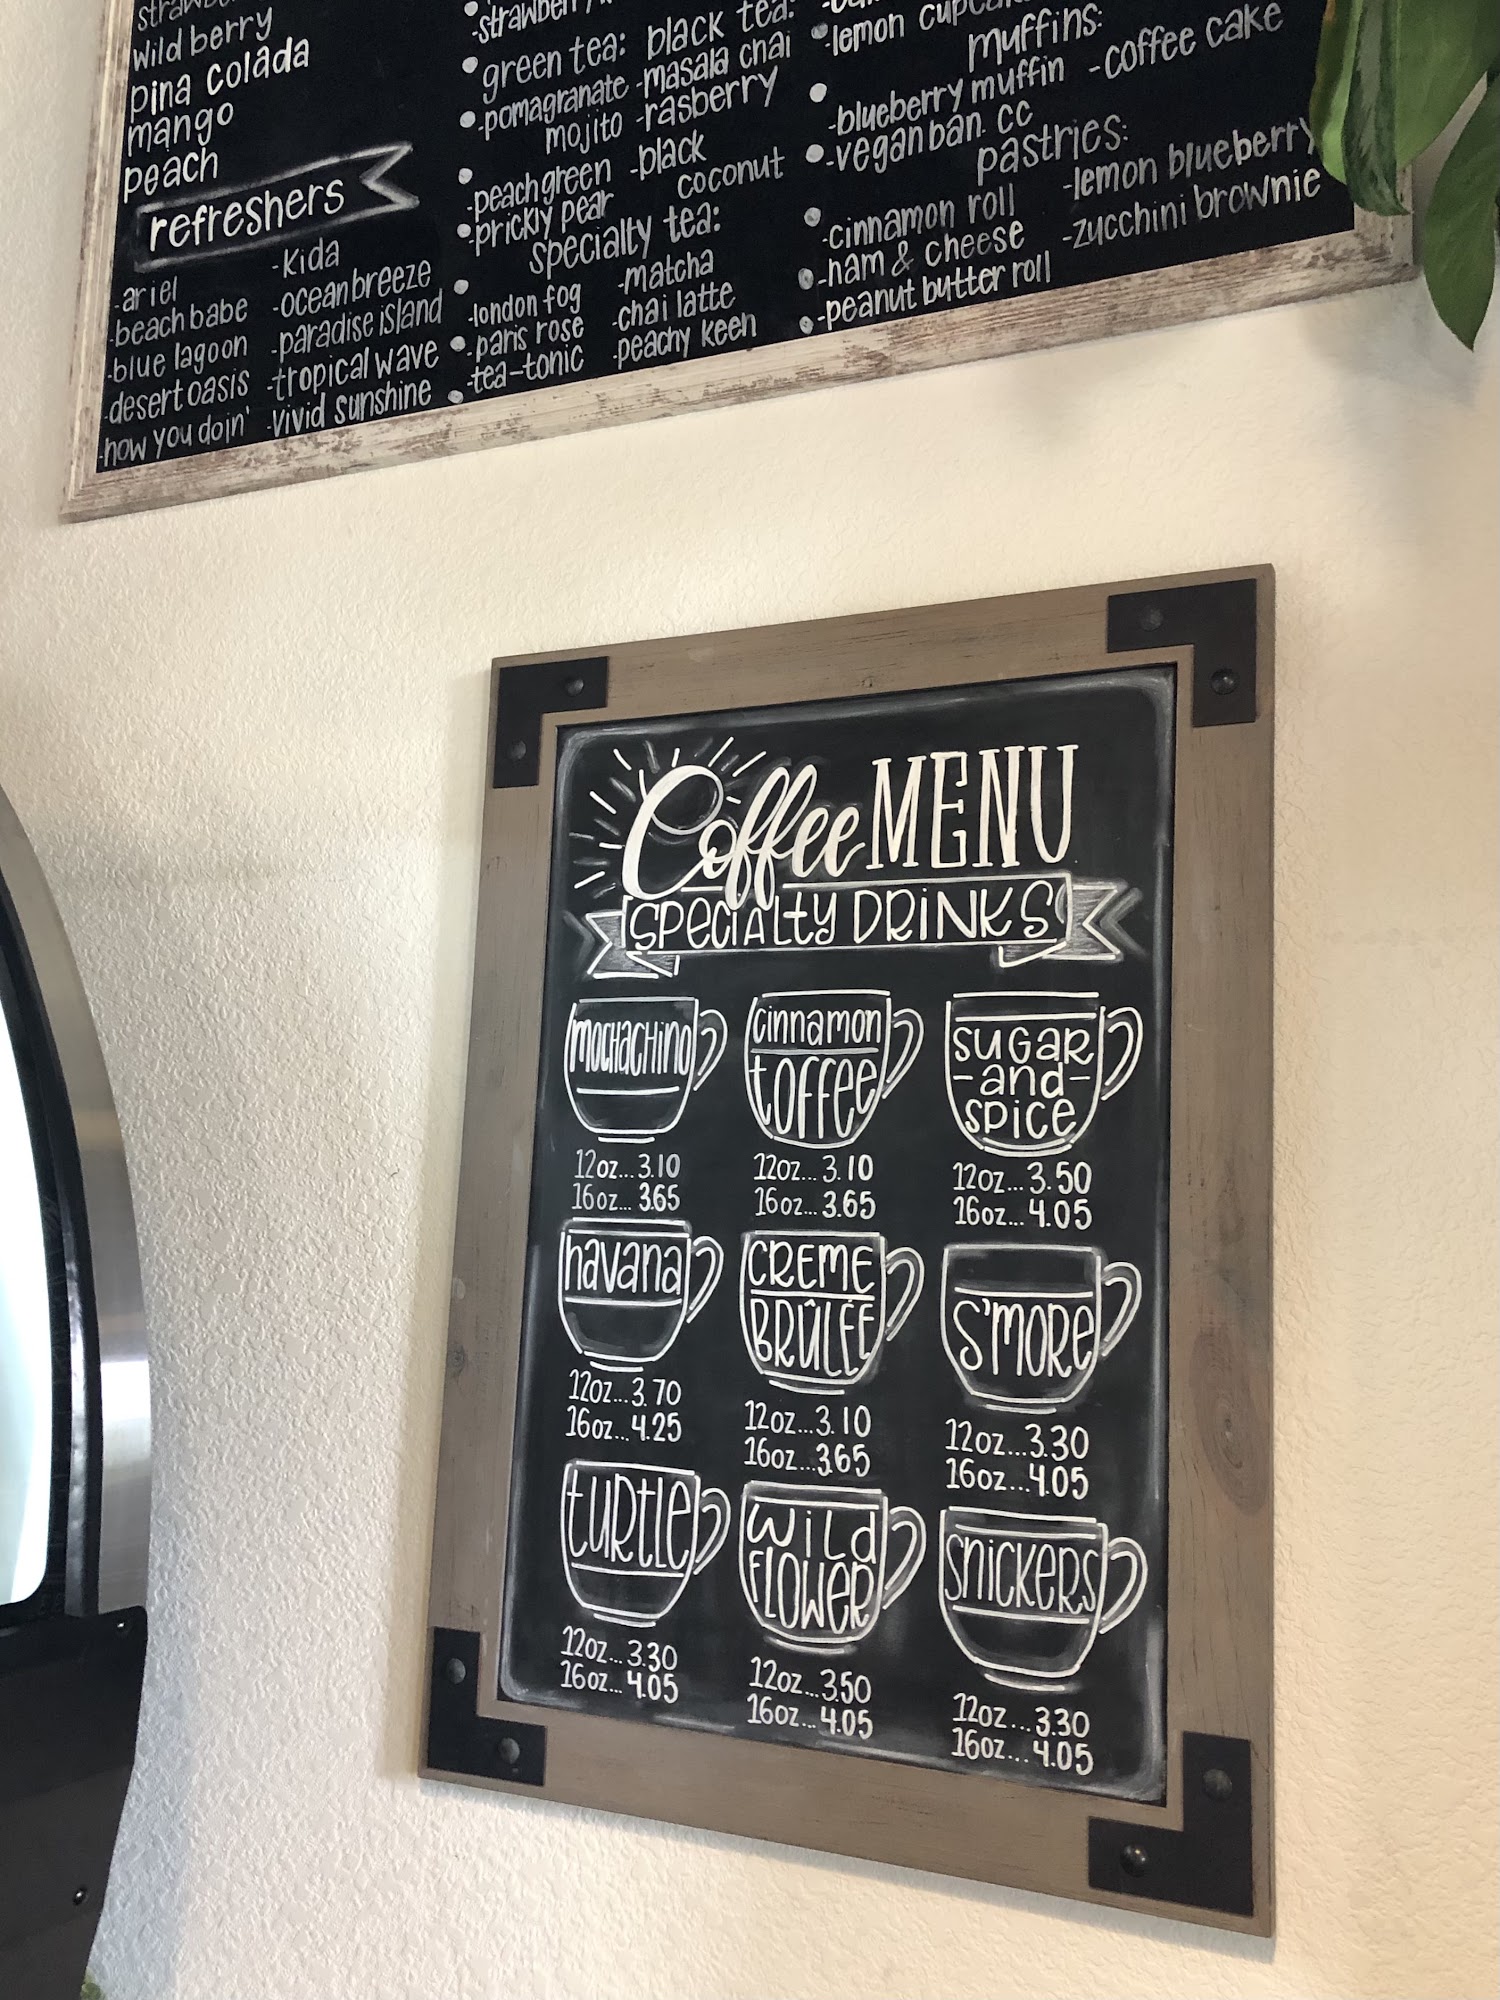 wild berry
pina colada
mango
peach
refreshers
-ariel
-beach babe
-blue lagoon
-desert oasis
-how you doin'
-Kida
-ocean breeze
-paradise island
-tropical wave
-vivid sunshine
green tea: black tea:
-pomagranate -masala chai
mojito -rasberry
-peach green -black
-prickly pear coconut
specialty tea:
-london fog -matcha
-paris rose -chai latte
-tea-tonic -peachy keen
muffins:
-blueberry muffin -coffee cake
-vegan ban. cc
pastries:
-cinnamon roll -lemon blueberry
-ham & cheese -zucchini brownie
-peanut butter roll
Coffee MENU
SPECIALTY DRINKS
MOCHACHINO
12oz...3.10
16oz...3.65
cinnamon
TOFFEE
12oz...3.10
16oz...3.65
SUGAR
-and-
SPICE
12oz...3.50
16oz...4.05
havana
12oz...3.70
16oz...4.25
CREME
BRÛLÉE
12oz...3.10
16oz...3.65
S'MORE
12oz...3.30
16oz...4.05
TURTLE
12oz...3.30
16oz...4.05
WILD
FLOWER
12oz...3.50
16oz...4.05
SNICKERS
12oz...3.30
16oz...4.05